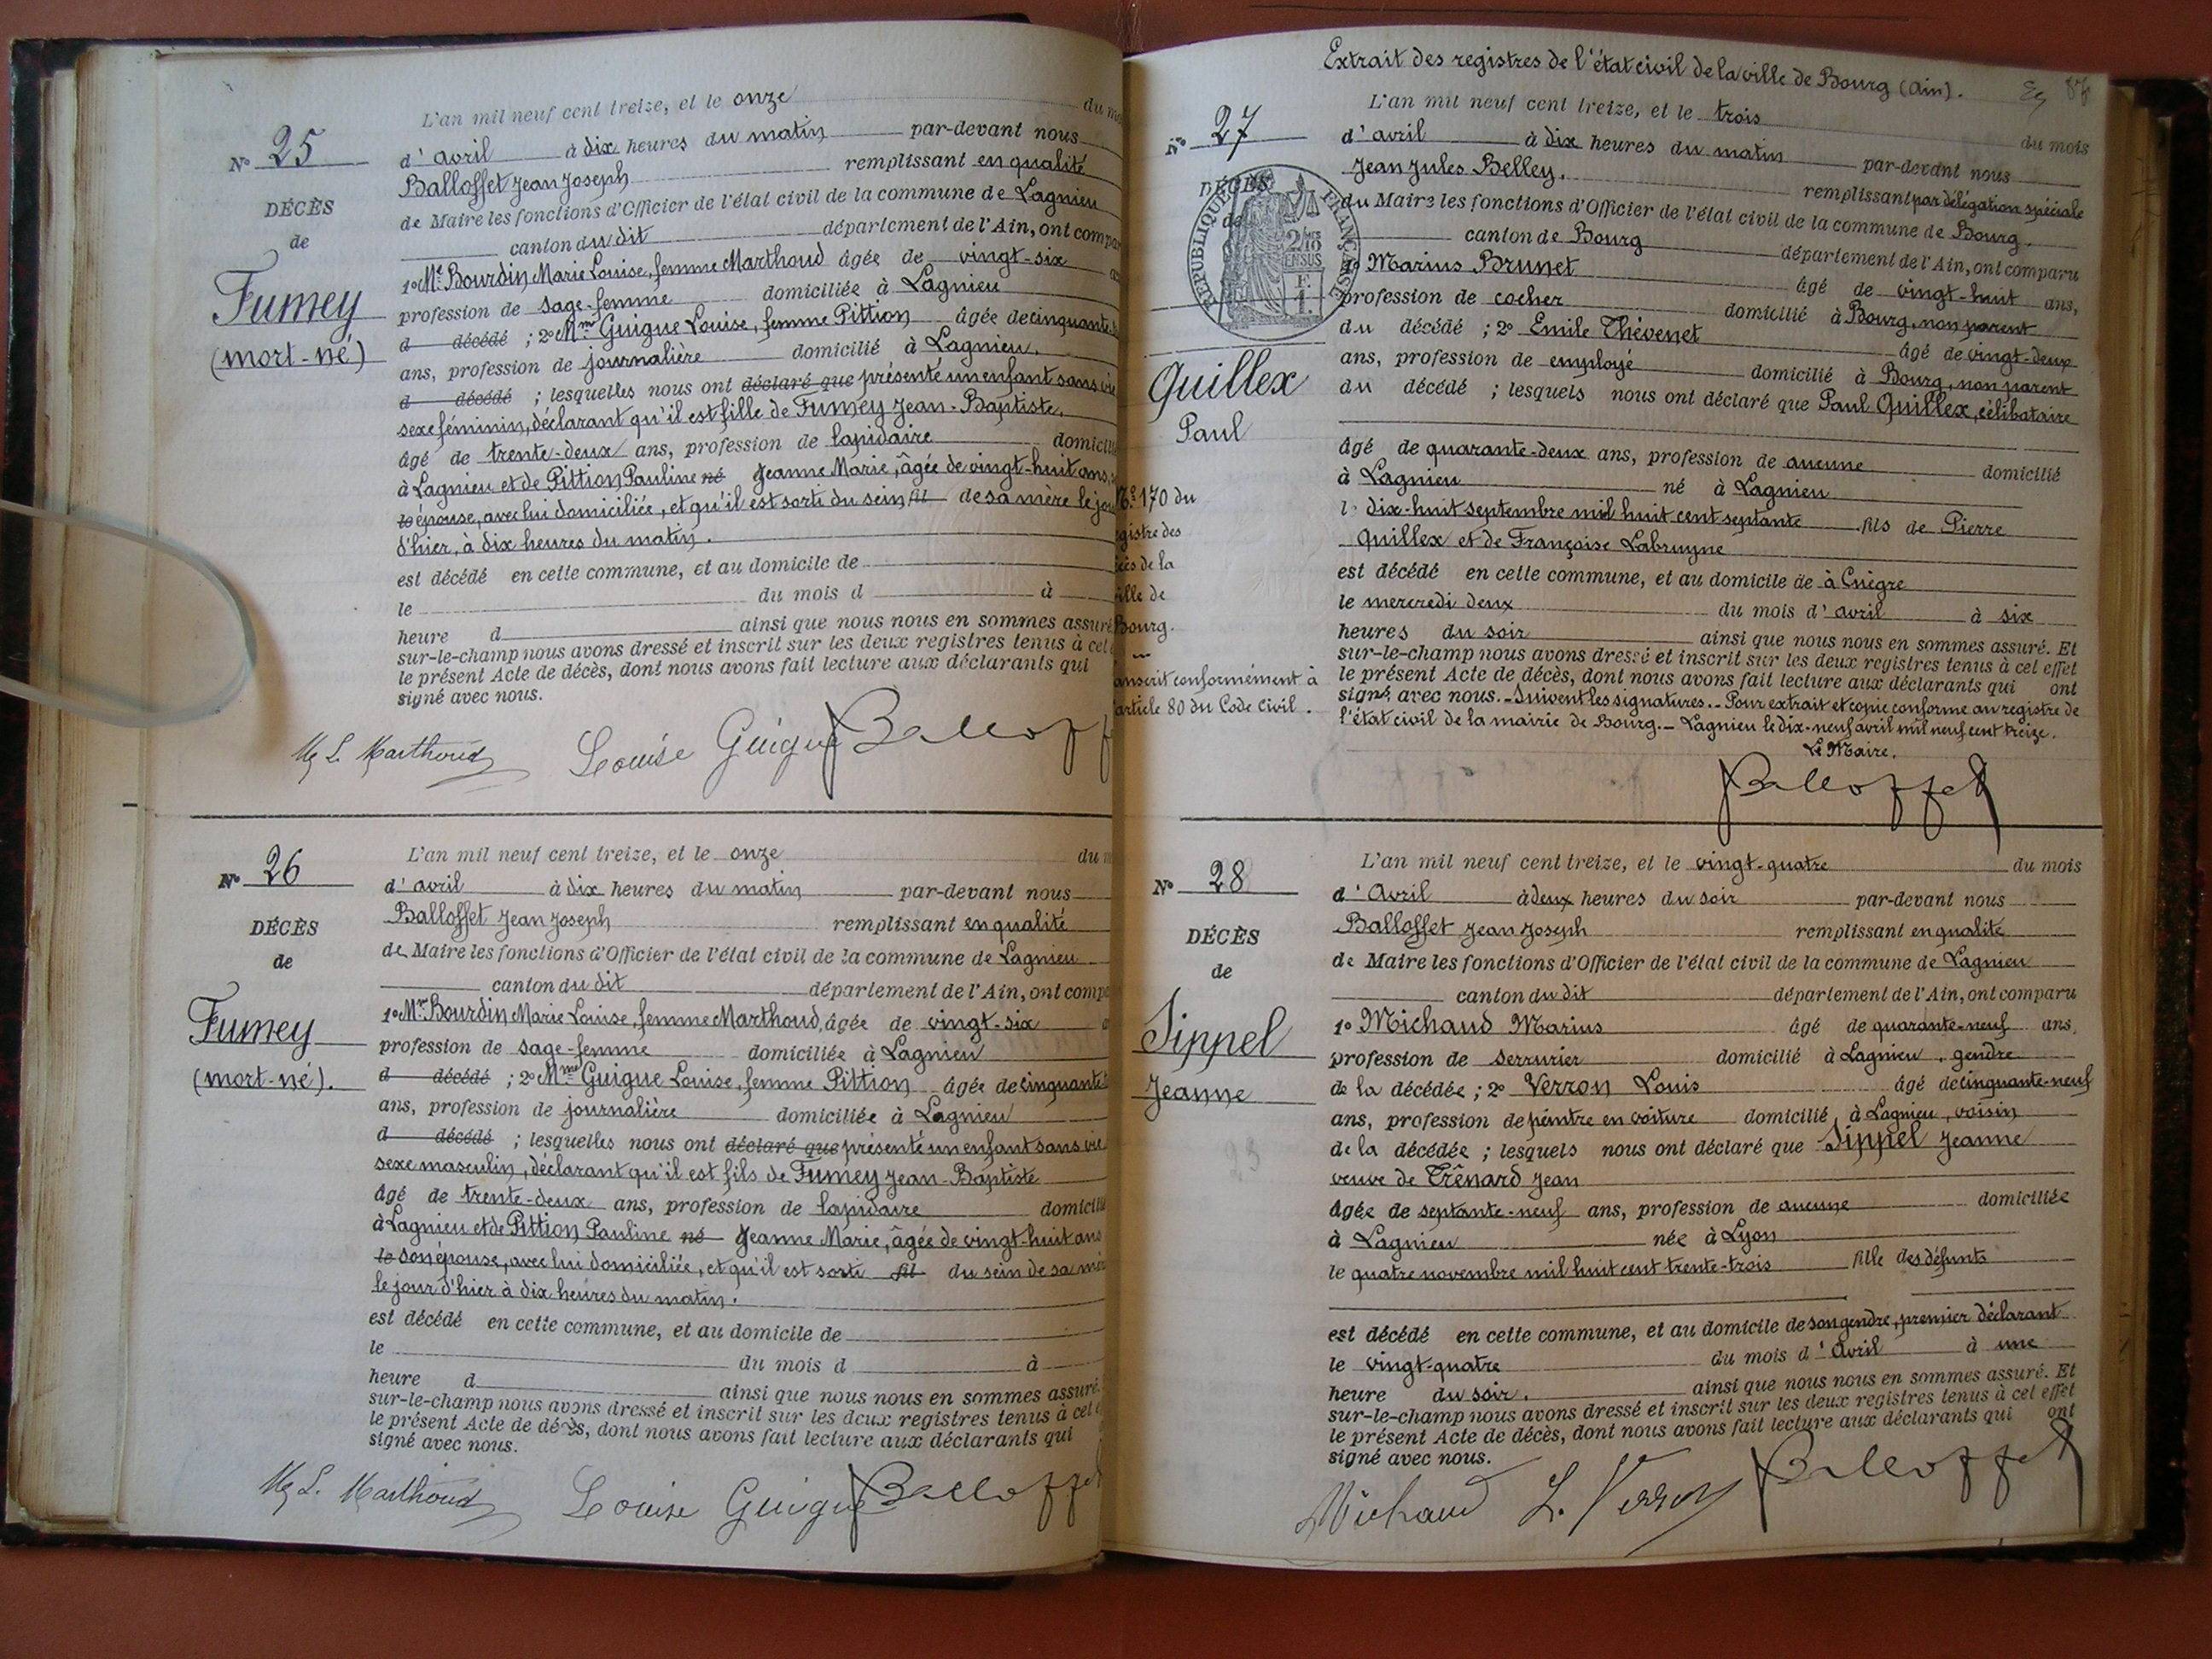 L'an mil neuf cent treize, et le onze du mo
N° 25
d'avril à dix heures du matin par-devant nous
Balloffet Jean Joseph remplissant en qualité
DÉCÈS
de Maire les fonctions d'Officier de l'état civil de la commune de Lagnieu
de
canton du dit département de l'Ain, ont compar
1° Me Bourdin Marie Louise, femme Marthoud âgée de vingt-six
Fumey
profession de sage-femme domiciliée à Lagnieu
d décédé ; 2° Mme Guigue Louise, femme Pittion âgée de cinquante
(mort-né)
ans, profession de journalière domicilié à Lagnieu.
d décédé ; lesquelles nous ont déclaré que présenté un enfant sans vie
sexe féminin, déclarant qu'il est fille de Fumey Jean-Baptiste,
âgé de trente-deux ans, profession de lapidaire domicilié
à Lagnieu et de Pittion Pauline né Jeanne Marie, âgée de vingt-huit ans,
le épouse, avec lui domiciliée, et qu'il est sorti du sein fil de sa mère le jou
d'hier, à dix heures du matin.
est décédé en cette commune, et au domicile de
le du mois d à
heure d ainsi que nous nous en sommes assuré
sur-le-champ nous avons dressé et inscrit sur les deux registres tenus à cet
le présent Acte de décès, dont nous avons fait lecture aux déclarants qui
signé avec nous.
M L. Marthoud Louise Guigue Balloff
L'an mil neuf cent treize, et le onze du m
N° 26
d'avril à dix heures du matin par-devant nous
Balloffet Jean Joseph remplissant en qualité
DÉCÈS
de Maire les fonctions d'Officier de l'état civil de la commune de Lagnieu
de
canton du dit département de l'Ain, ont compa
Fumey
1° Me Bourdin Marie Louise, femme Marthoud, âgée de vingt-six
profession de sage-femme domiciliée à Lagnieu
(mort-né).
d décédé ; 2° Mme Guigue Louise, femme Pittion âgée de cinquante
ans, profession de journalière domiciliée à Lagnieu
d décédé ; lesquelles nous ont déclaré que présenté un enfant sans vie
sexe masculin, déclarant qu'il est fils de Fumey Jean-Baptiste
âgé de trente-deux ans, profession de lapidaire domicilié
à Lagnieu et de Pittion Pauline né Jeanne Marie, âgée de vingt-huit ans
le son épouse, avec lui domiciliée, et qu'il est sorti fil du sein de sa mèr
le jour d'hier à dix heures du matin.
est décédé en cette commune, et au domicile de
le du mois d à
heure d ainsi que nous nous en sommes assuré.
sur-le-champ nous avons dressé et inscrit sur les deux registres tenus à cet e
le présent Acte de décès, dont nous avons fait lecture aux déclarants qui
signé avec nous.
M L. Marthoud Louise Guigue Balloffet
Extrait des registres de l'état civil de la ville de Bourg (Ain).
L'an mil neuf cent treize, et le trois du mois
N° 27
d'avril à dix heures du matin par-devant nous
Jean Jules Belley. remplissant par délégation spéciale
DÉCÈS
du Maire les fonctions d'Officier de l'état civil de la commune de Bourg.
de
canton de Bourg département de l'Ain, ont comparu
RÉPUBLIQUE FRANÇAISE
2/10 EN SUS
F. 1.
1° Marius Brunet âgé de vingt-huit ans,
profession de cocher domicilié à Bourg, non parent
du décédé ; 2° Emile Thévenet âgé de vingt-deux
Quillex
ans, profession de employé domicilié à Bourg, non parent
Paul
du décédé ; lesquels nous ont déclaré que Paul Quillex, célibataire
âgé de quarante-deux ans, profession de aucune domicilié
à Lagnieu né à Lagnieu
l dix-huit septembre mil huit cent septante fils de Pierre
Quillex et de Françoise Labruyne
est décédé en cette commune, et au domicile de à Cuègre
le mercredi deux du mois d'avril à six
heures du soir ainsi que nous nous en sommes assuré. Et
sur-le-champ nous avons dressé et inscrit sur les deux registres tenus à cet effet
le présent Acte de décès, dont nous avons fait lecture aux déclarants qui ont
signé avec nous. - Suivent les signatures. - Pour extrait et copie conforme au registre de
l'état civil de la mairie de Bourg. - Lagnieu le dix-neuf avril mil neuf cent treize.
Le Maire,
Balloffet
N° 170 du
gistre des
cès de la
ille de
Bourg.
anscrit conformément à
article 80 du Code Civil.
L'an mil neuf cent treize, et le vingt-quatre du mois
N° 28
d'Avril à deux heures du soir par-devant nous
Balloffet Jean Joseph remplissant en qualité
DÉCÈS
de Maire les fonctions d'Officier de l'état civil de la commune de Lagnieu
de
canton du dit département de l'Ain, ont comparu
Sippel
1° Michaud Marius âgé de quarante-neuf ans,
profession de serrurier domicilié à Lagnieu, gendre
Jeanne
de la décédée ; 2° Verron Louis âgé de cinquante-neuf
ans, profession de peintre en voiture domicilié à Lagnieu, voisin
de la décédée ; lesquels nous ont déclaré que Sippel Jeanne
veuve de Trênard Jean
âgée de septante-neuf ans, profession de aucune domiciliée
à Lagnieu née à Lyon
le quatre novembre mil huit cent trente-trois fille des défunts
est décédé en cette commune, et au domicile de son gendre, premier déclarant
le vingt-quatre du mois d'Avril à une
heure du soir. ainsi que nous nous en sommes assuré. Et
sur-le-champ nous avons dressé et inscrit sur les deux registres tenus à cet effet
le présent Acte de décès, dont nous avons fait lecture aux déclarants qui ont
signé avec nous.
Michaud L. Verron Balloffet